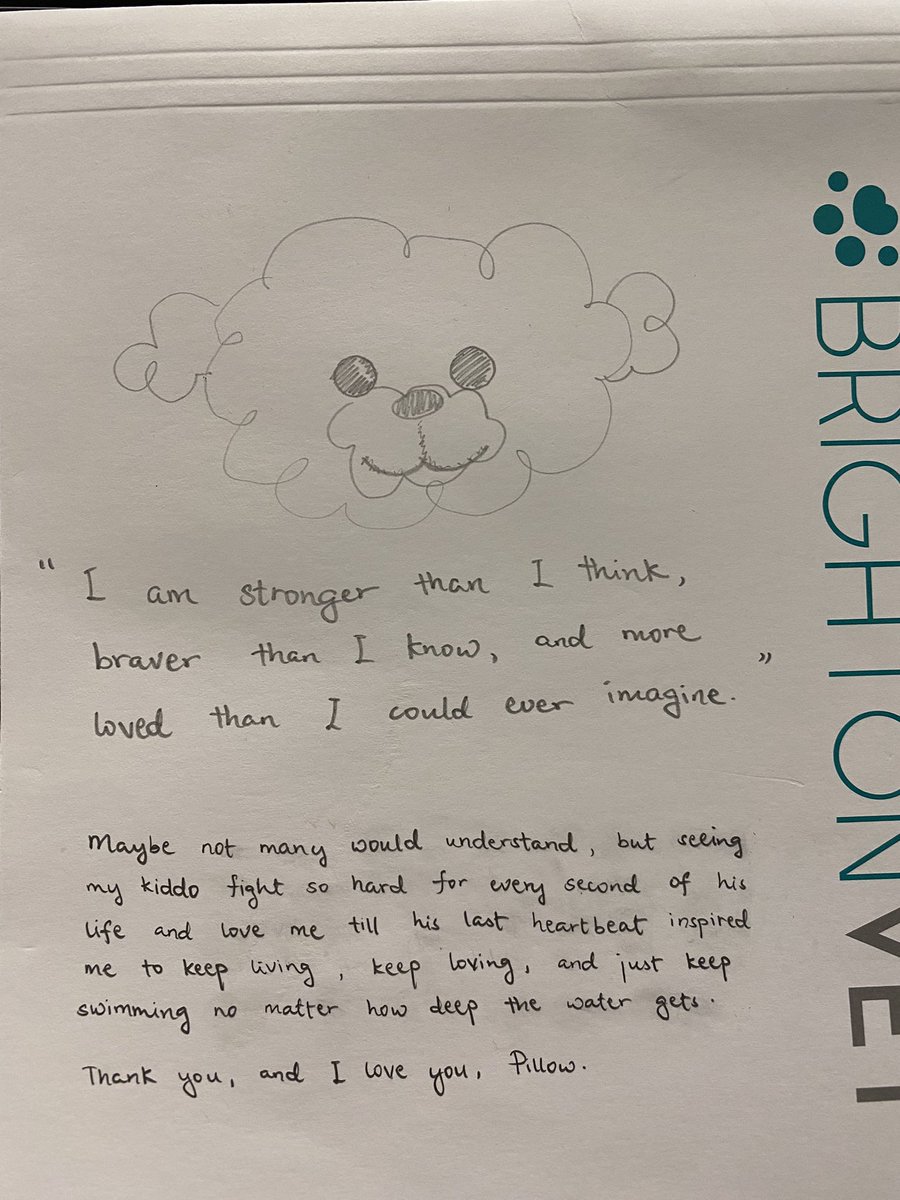 “ I am stronger than I think,
braver than I know, and more
loved than I could ever imagine. ”
Maybe not many would understand, but seeing
my kiddo fight so hard for every second of his
life and love me till his last heartbeat inspired
me to keep living, keep loving, and just keep
swimming no matter how deep the water gets.
Thank you, and I love you, Pillow.
BRIGHTON VET